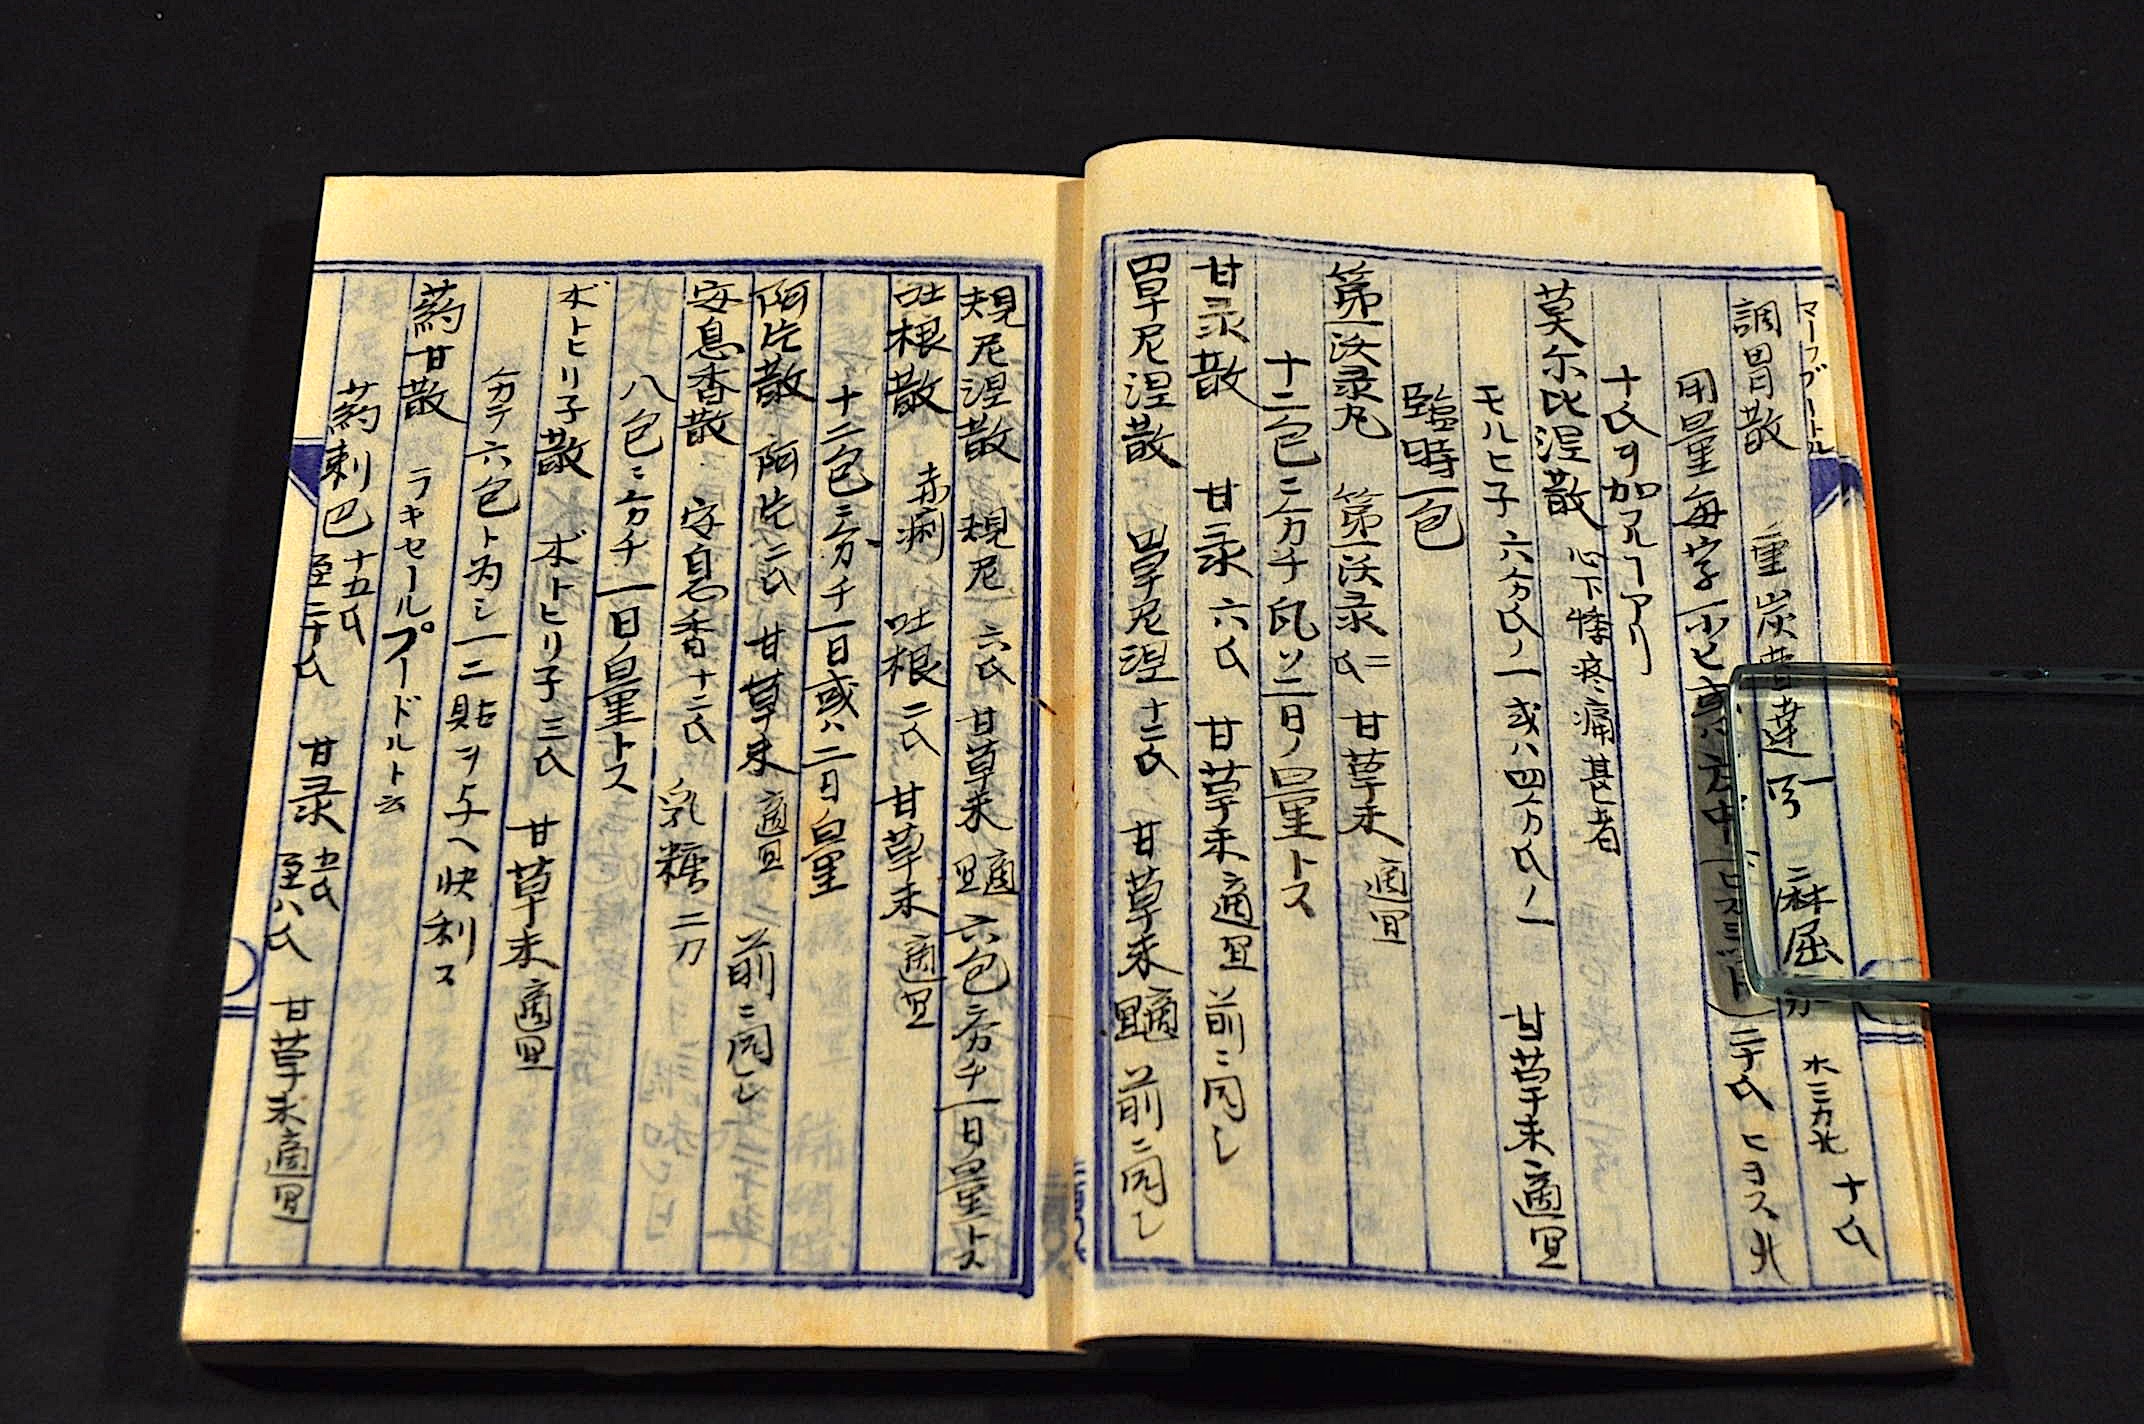 マーフブートル
調胃散 重炭曹達 一弓 二麻屈 水三力北 十氏
用量毎字一小ヒ或ハ 二十氏ヒヨス北
十氏ヲ加フルヿアリ
莫尔比涅散 心下悸疼痛甚者
モルヒ子 六分氏ノ一或ハ四分氏ノ一 甘草末 適宜
臨時一包
第一沃录丸 第一沃录 二氏 甘草末 適宜
十二包ニ分チ瓦ソ二日ノ量トス
甘录散 甘录 六氏 甘草末 適宜 前ニ同し
單尼涅散 單尼涅 十二氏 甘草末 適宜 前ニ同し
規尼涅散 規尼 六氏 甘草末 適宜 六包ニ分チ一日量トス
吐根散 赤痢 吐根 二氏 甘草末 適宜
十二包ニ分チ一日或ハ二日量
阿片散 阿片 二氏 甘草末 適宜 前ニ同し
安息香散 安息香 十二氏 乳糖 二刀
八包ニ分チ一日ノ量トス
ボトヒリ子散 ボトヒリ子 三氏 甘草末 適宜
分テ六包ト為シ一二貼ヲ与ヘ快利ス
葯甘散 ラキセールプードルト云
葯刺巴 十五氏至二十氏 甘录 五氏至八氏 甘草末 適宜